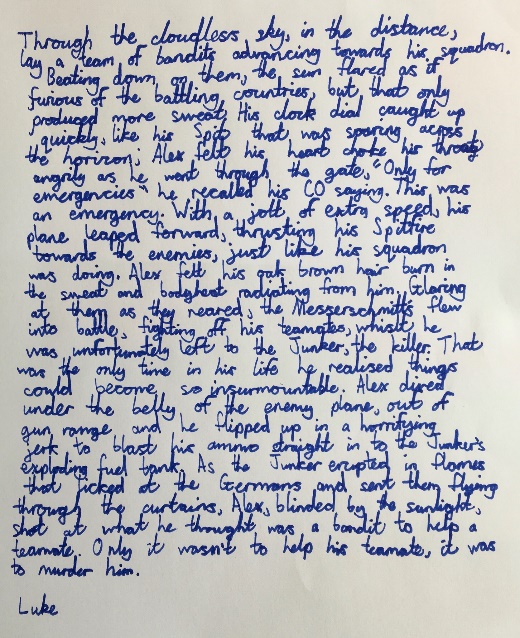 Through the cloudless sky, in the distance,
lay a team of bandits advancing towards his squadron.
Beating down on them, the sun flared as if
furious of the battling countries, but that only
produced more sweat. His clock dial caught up
quickly, like his Spit that was soaring across
the horizon; Alex felt his heart choke his throat
angrily as he went through the gate, "Only for
emergencies" he recalled his CO saying. This was
an emergency. With a jolt of extra speed, his
plane leaped forward, thrusting his Spitfire
towards the enemies, just like his squadron
was doing. Alex felt his oak brown hair burn in
the sweat and bodyheat radiating from him. Glaring
at them as they neared, the Messerschmitts flew
into battle, fighting off his teamates, whislt he
was unfortunately left to the Junker, the killer. That
was the only time in his life he realised things
could become so insurmountable. Alex dived
under the belly of the enemy plane, out of
gun range and he flipped up in a horrifying
jerk to blast his ammo straight in to the Junker's
exploding fuel tank. As the Junker erupted in flames
that licked at the Germans and sent them flying
through the curtains, Alex, blinded by the sunlight,
shot at what he thought was a bandit to help a
teamate. Only it wasn't to help his teamate, it was
to murder him.
Luke